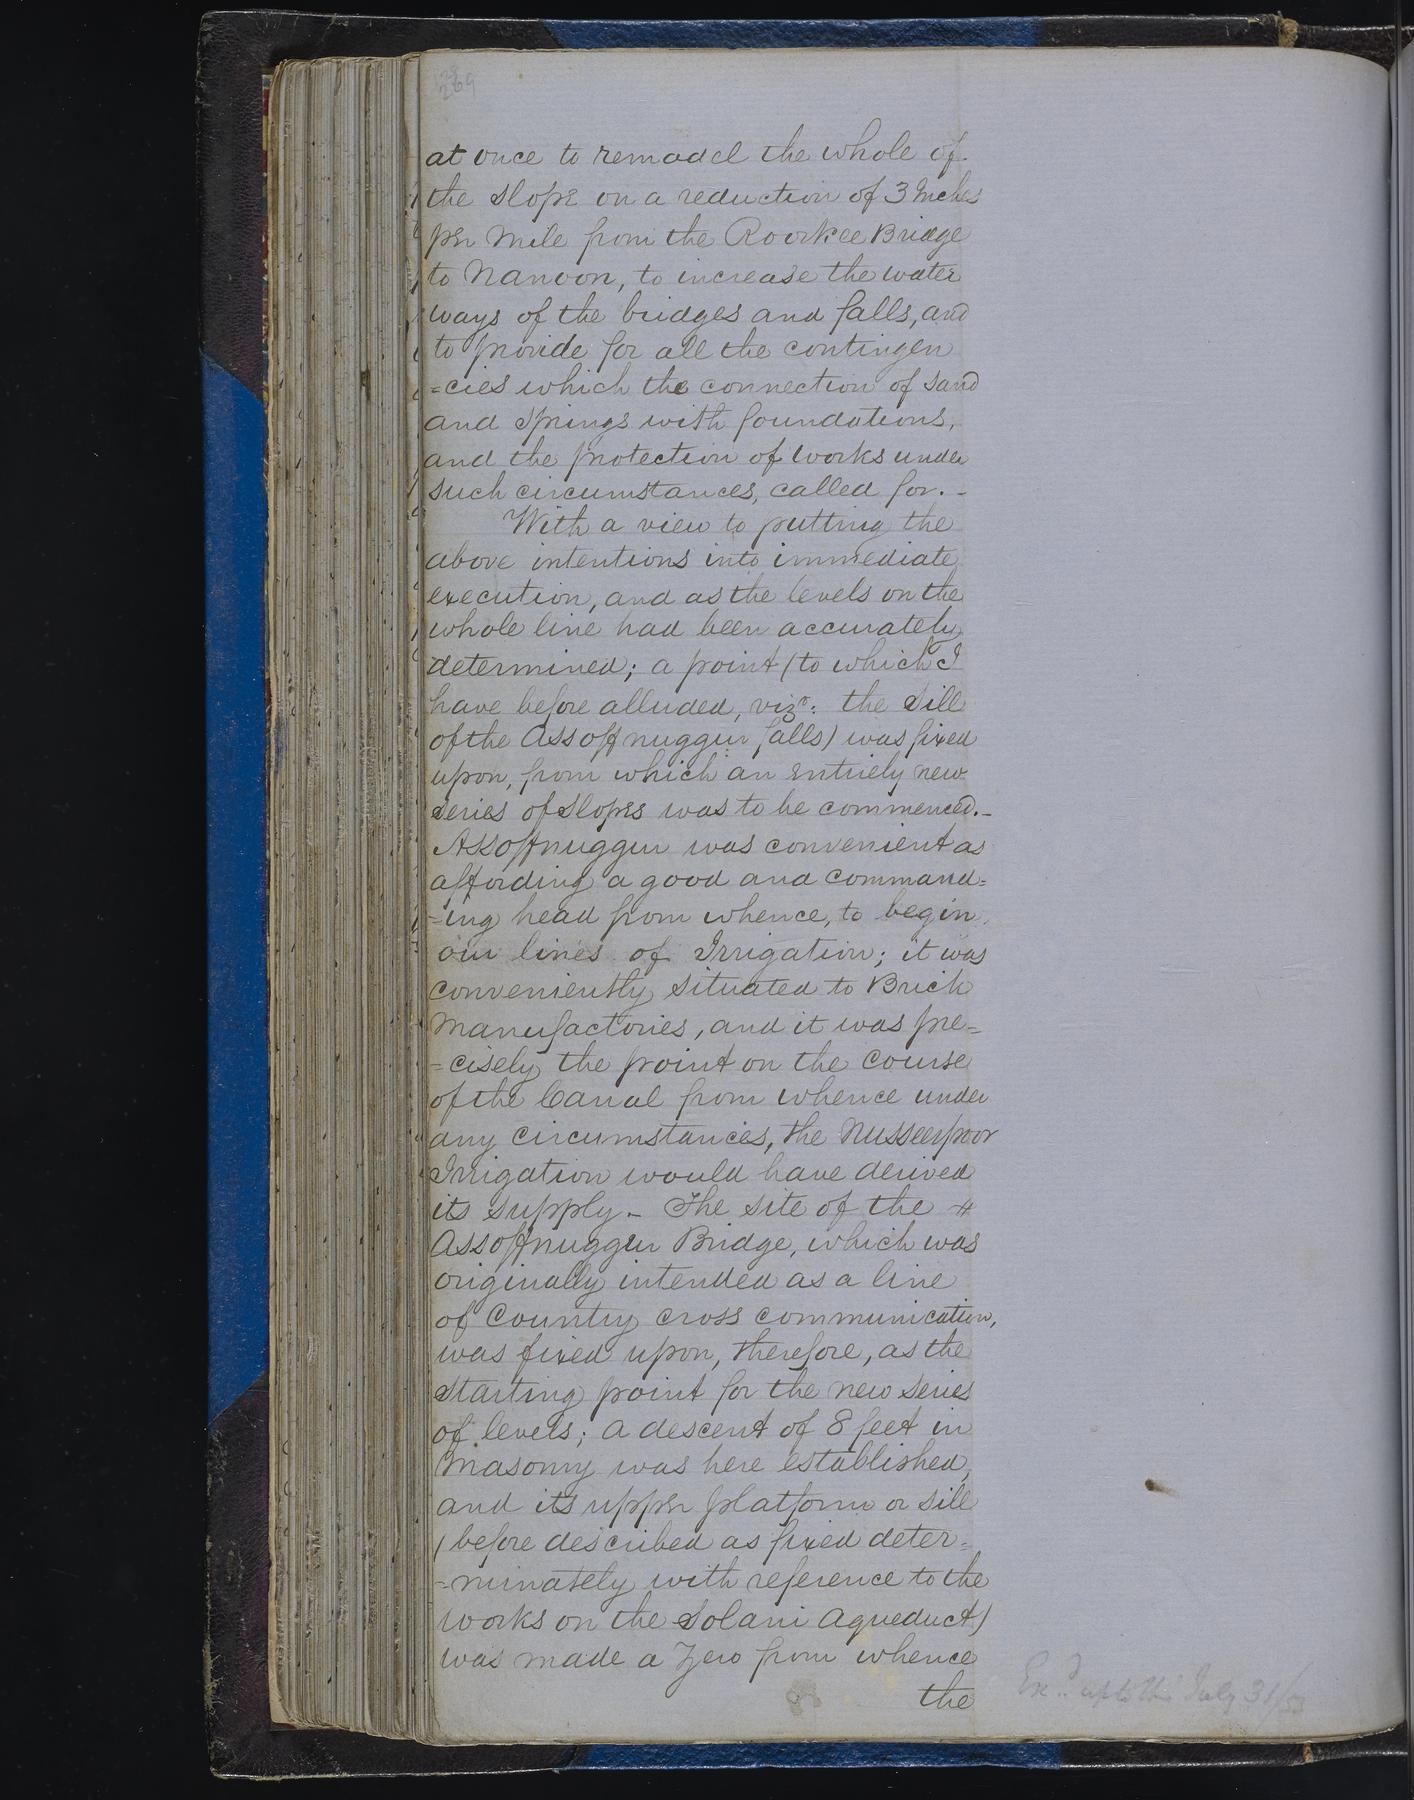 269
at once to remodel the whole of
the slope on a reduction of 3 Inches
per Mile from the Roorkee Bridge
to Nanoon, to increase the water
ways of the bridges and falls, and
to provide for all the contingen
=cies which the connection of sand
and springs with foundations,
and the protection of works under
such circumstances, called for. -
With a view to putting the
above intentions into immediate
execution, and as the levels on the
whole line had been accurately
determined; a point (to which I
have before alluded, vizt: the Sill
of the Assoffnuggur falls) was fixed
upon, from which an entirely new
series of slopes was to be commenced. -
Assoffnuggur was convenient as
affording a good and command=
=ing head from whence, to begin
our lines of Irrigation; it was
conveniently situated to Brick
Manufactories, and it was pre=
=cisely the point on the Course
of the Canal from whence under
any circumstances, the Nusseerpoor
Irrigation would have derived
its supply - The site of the
Assoffnuggur Bridge, which was
originally intended as a line
of Country cross communication,
was fixed upon, therefore, as the
starting point for the new series
of levels; a descent of 8 feet in
Masonry was here established,
and its upper platform or sill
(before described as fixed deter=
=minately with reference to the
works on the Solani Aqueduct)
was made a Zero from whence
the
Exd. up to this July 31/53